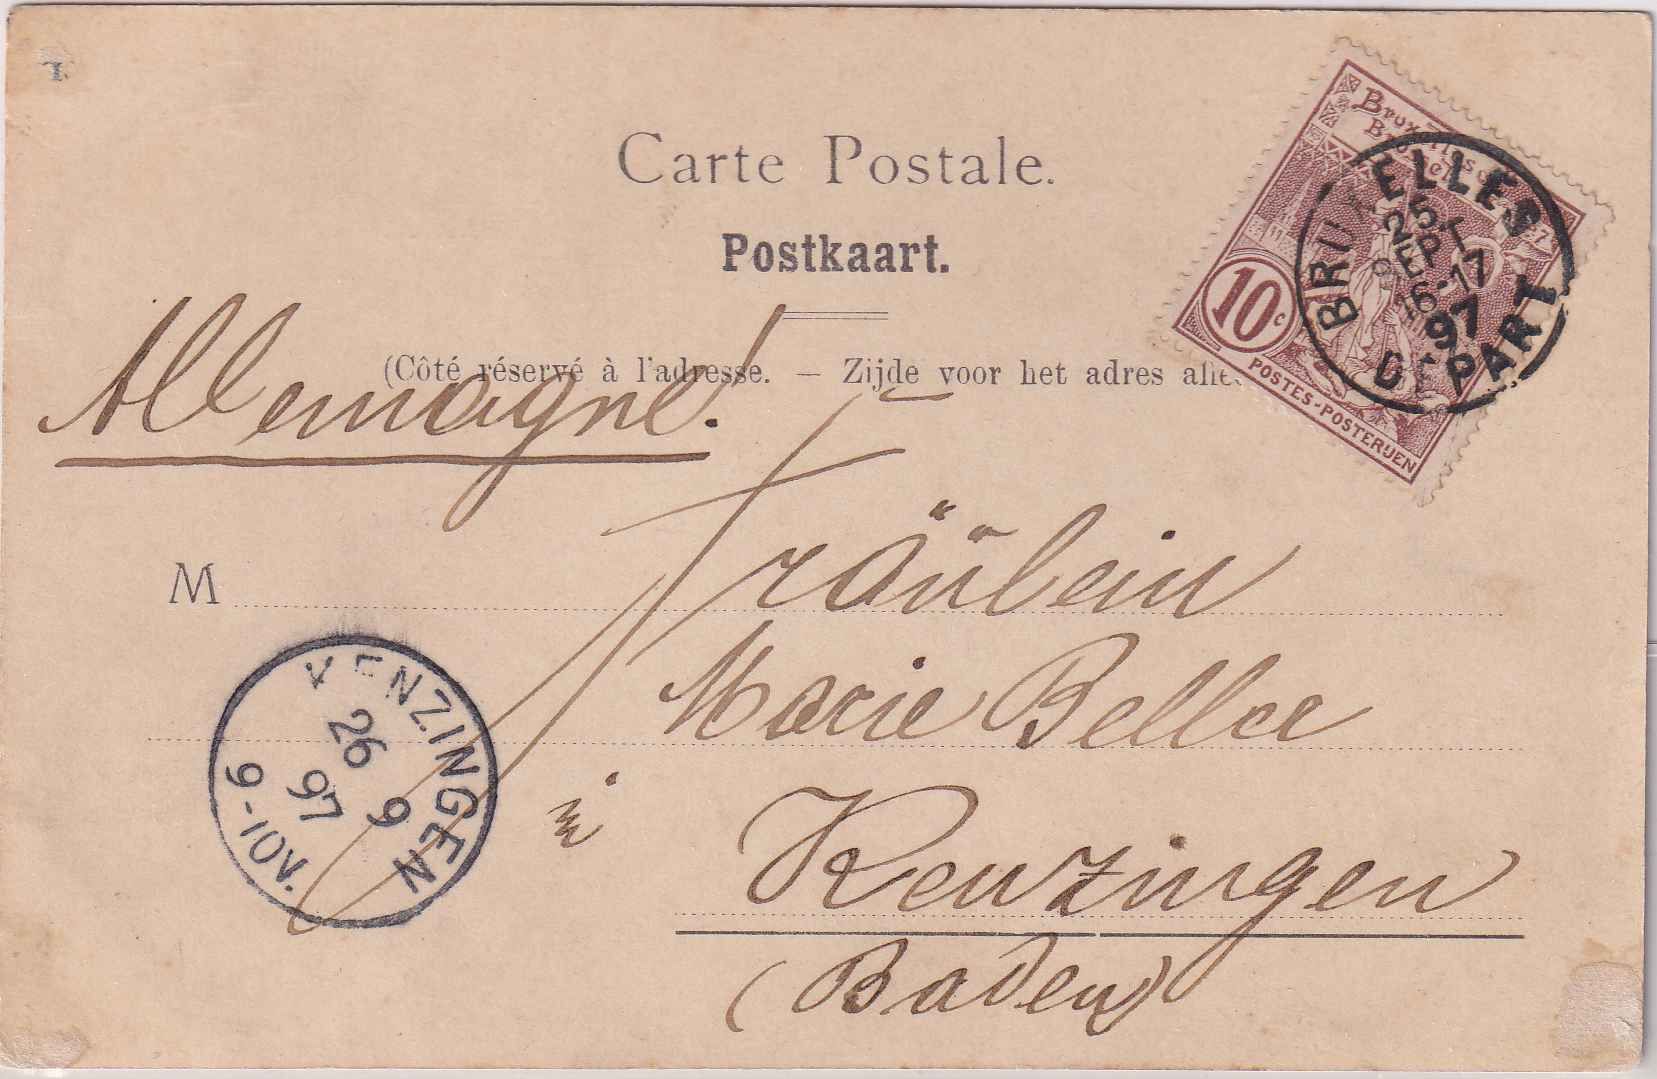 Carte Postale.
Postkaart.
(Côté réservé à l'adresse. — Zijde voor het adres
Allemagne!
M
Fräulein
Marie Beller
in
Kenzingen
(Baden)
10 c
POSTES-POSTERIJEN
BRUXELLES
25
SEPT
16-17
97
DEPART
KENZINGEN
26 9
97
9-10V.